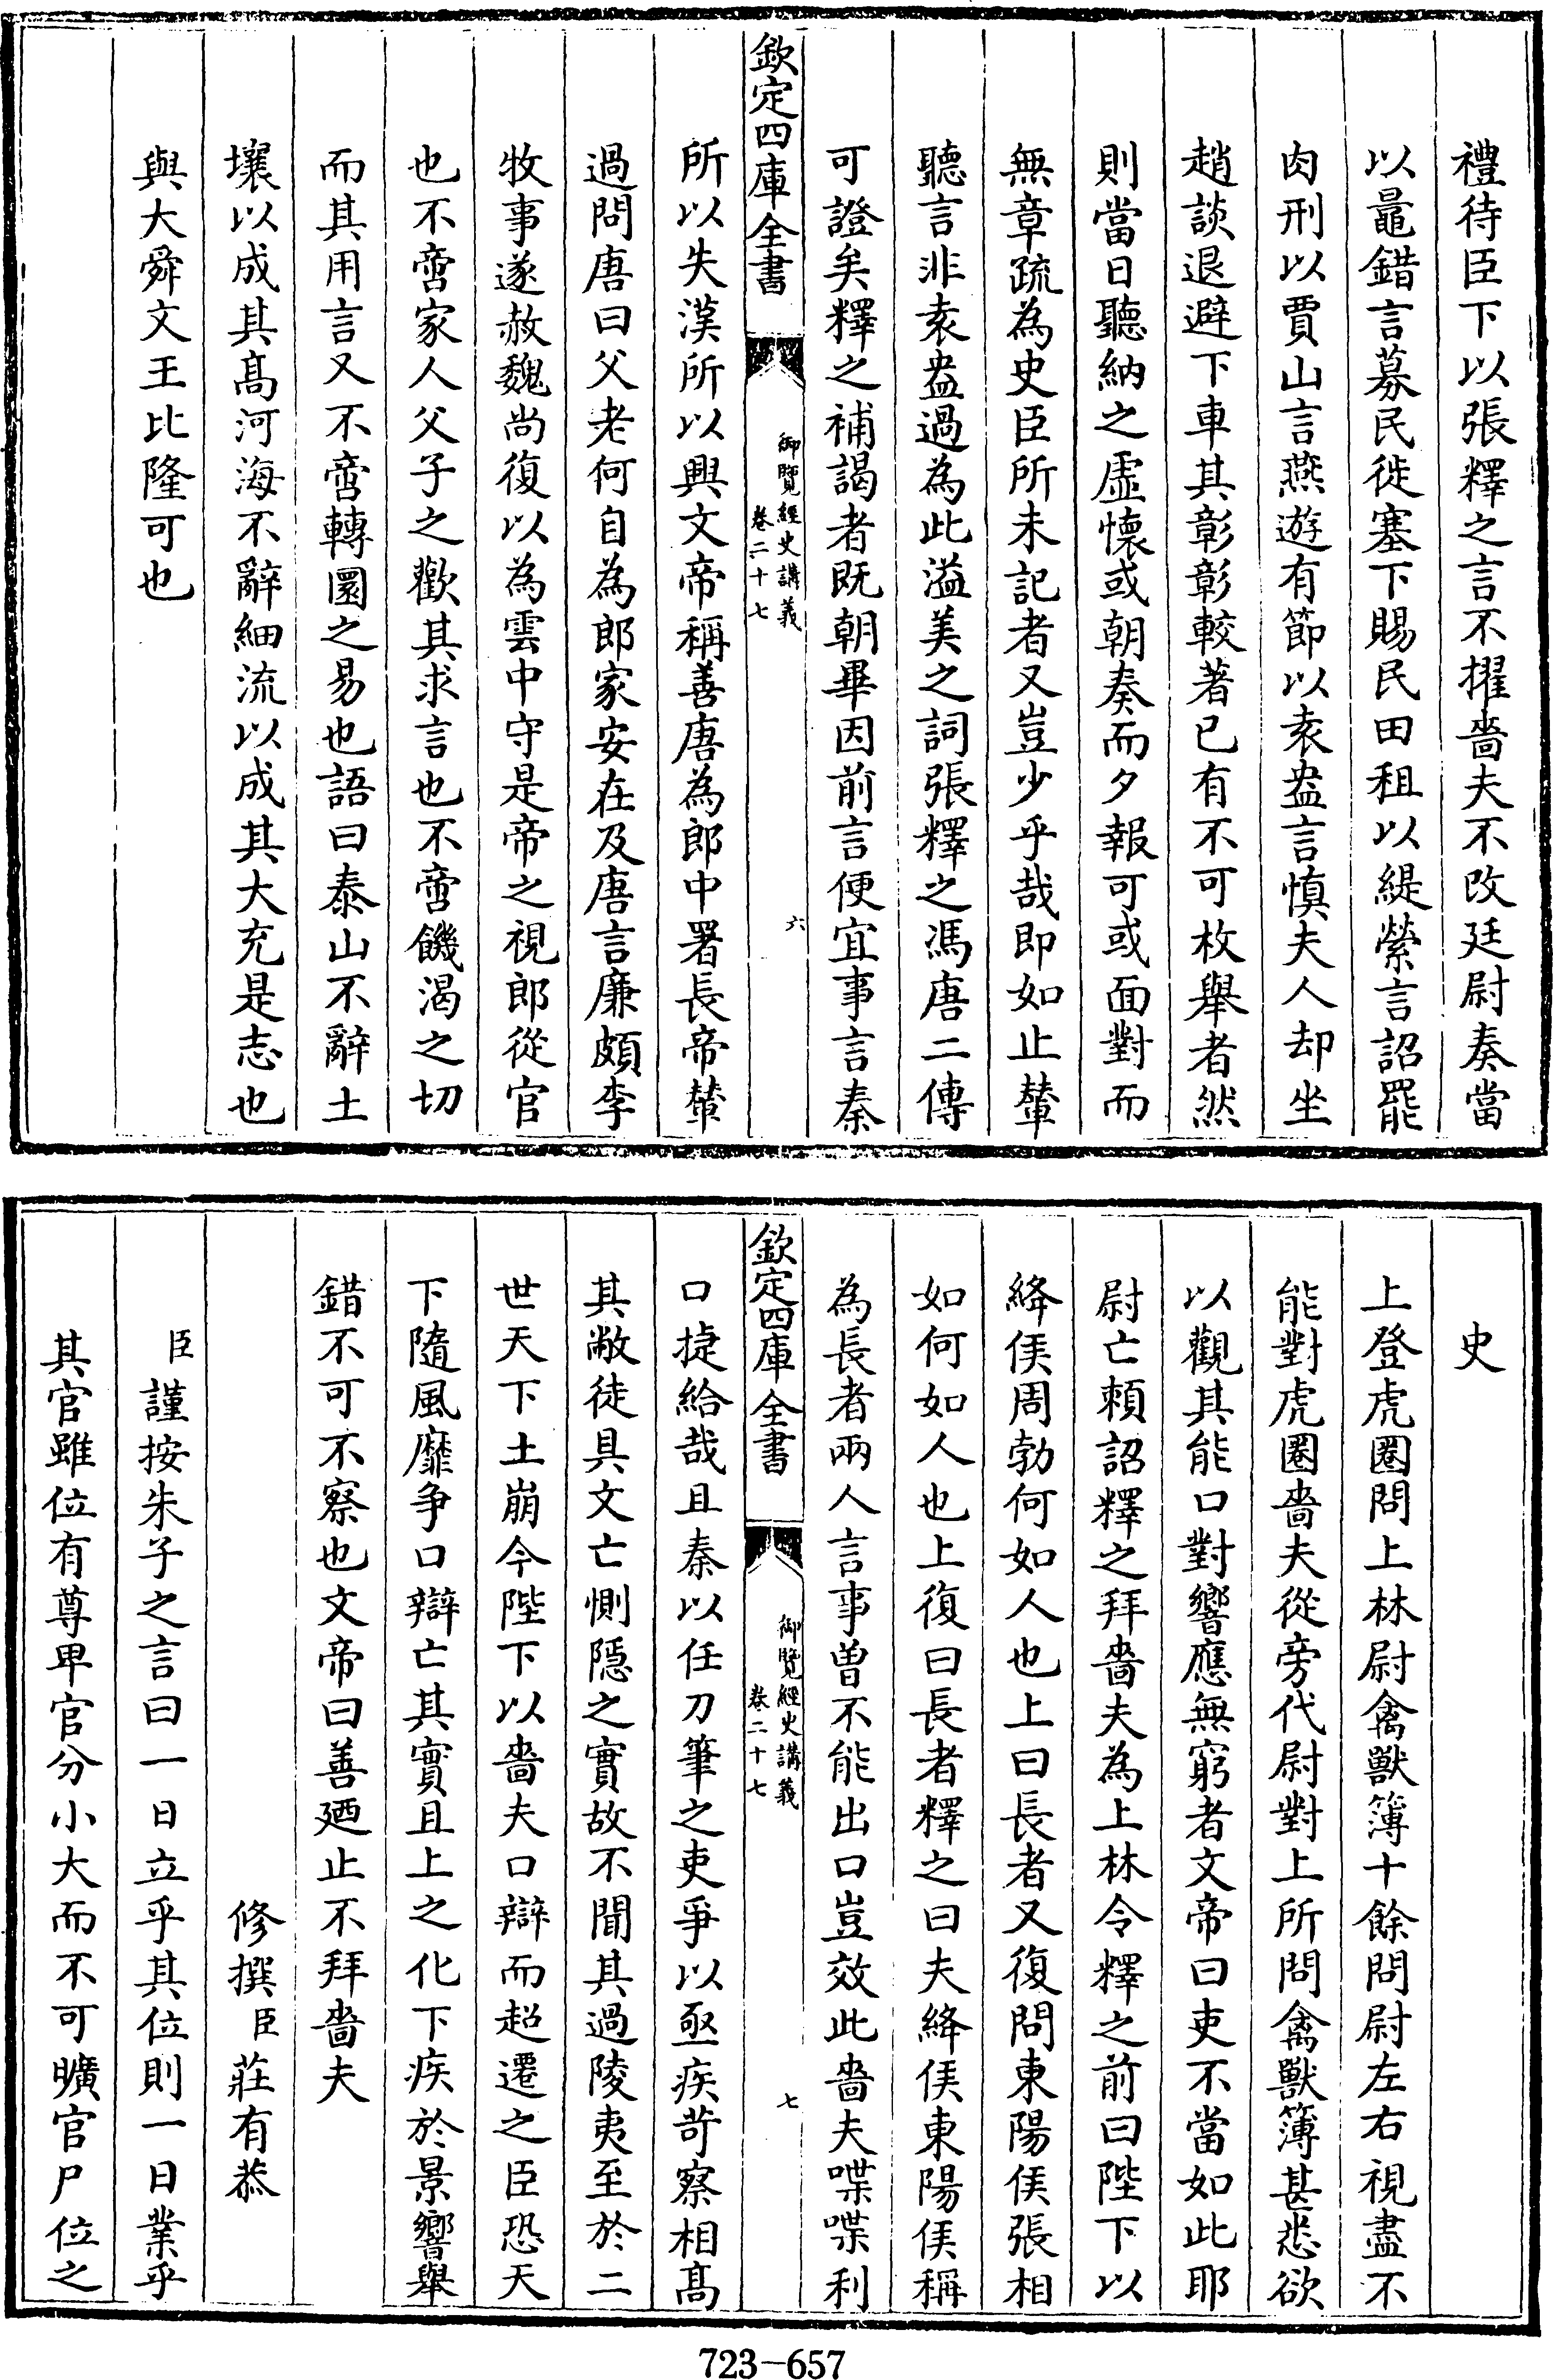 禮待臣下以張釋之言不擢嗇夫不改廷尉奏當
以鼂錯言募民徙塞下賜民田租以緹縈言詔罷
肉刑以賈山言燕遊有節以袁盎言慎夫人却坐
趙談退避下車其彰彰較著已有不可枚舉者然
則當日聽納之虛懷或朝奏而夕報可或面對而
無章疏為史臣所未記者又豈少乎哉即如止輦
聽言非袁盎過為此溢美之詞張釋之馮唐二傳
可證矣釋之補謁者既朝畢因前言便宜事言秦
欽定四庫全書
御覽經史講義
卷二十七
六
所以失漢所以興文帝稱善唐為郎中署長帝輦
過問唐曰父老何自為郎家安在及唐言廉頗李
牧事遂赦魏尚復以為雲中守是帝之視郎從官
也不啻家人父子之歡其求言也不啻饑渴之切
而其用言又不啻轉圜之易也語曰泰山不辭土
壤以成其髙河海不辭細流以成其大充是志也
與大舜文王比隆可也
史
上登虎圈問上林尉禽獸簿十餘問尉左右視盡不
能對虎圈嗇夫從旁代尉對上所問禽獸簿甚悉欲
以觀其能口對響應無窮者文帝曰吏不當如此耶
尉亡賴詔釋之拜嗇夫為上林令釋之前曰陛下以
絳侯周勃何如人也上曰長者又復問東陽侯張相
如何如人也上復曰長者釋之曰夫絳侯東陽侯稱
為長者兩人言事曽不能出口豈效此嗇夫喋喋利
欽定四庫全書
御覽經史講義
卷二十七
七
口捷給哉且秦以任刀筆之吏爭以亟疾苛察相髙
其敝徒具文亡惻隠之實故不聞其過陵夷至於二
世天下土崩今陛下以嗇夫口辯而超遷之臣恐天
下隨風靡争口辯亡其實且上之化下疾於景響舉
錯不可不察也文帝曰善廼止不拜嗇夫
修撰臣莊有恭
臣謹按朱子之言曰一日立乎其位則一日業乎
其官雖位有尊卑官分小大而不可曠官尸位之
723-657